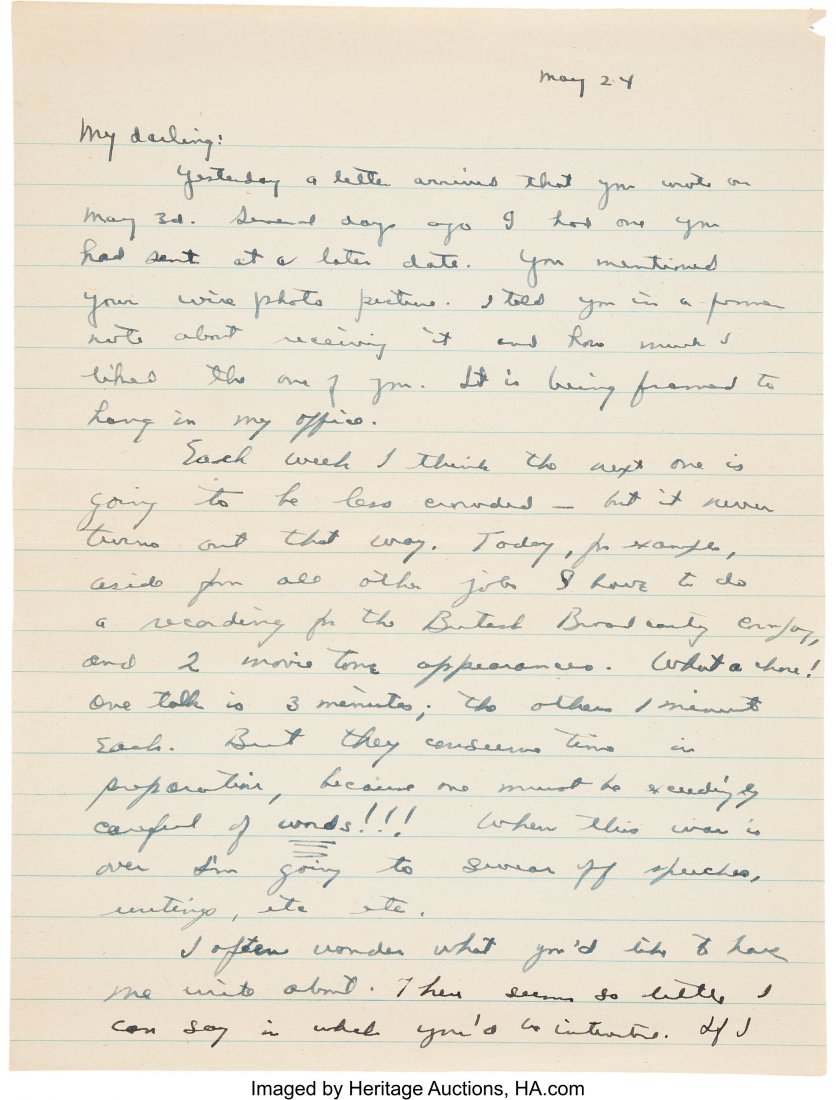 May 24
My darling:
Yesterday a letter arrived that you wrote on
May 3d. Several days ago I had one you
had sent at a later date. You mentioned
your wire photo picture. I told you in a former
note about receiving it and how much I
liked the one of you. It is being framed to
hang in my office.
Each week I think the next one is
going to be less crowded — but it never
turns out that way. Today, for example,
aside from all other jobs I have to do
a recording for the British Broadcasting Company,
and 2 movie tone appearances. What a chore!
One talk is 3 minutes; the others 1 minute
each. But they consume time in
preparation, because one must be exceedingly
careful of words!!! When this war is
over I'm going to swear off speeches,
writings, etc etc.
I often wonder what you'd like to have
me write about. There seems so little I
can say in which you'd be interested. If I
Imaged by Heritage Auctions, HA.com